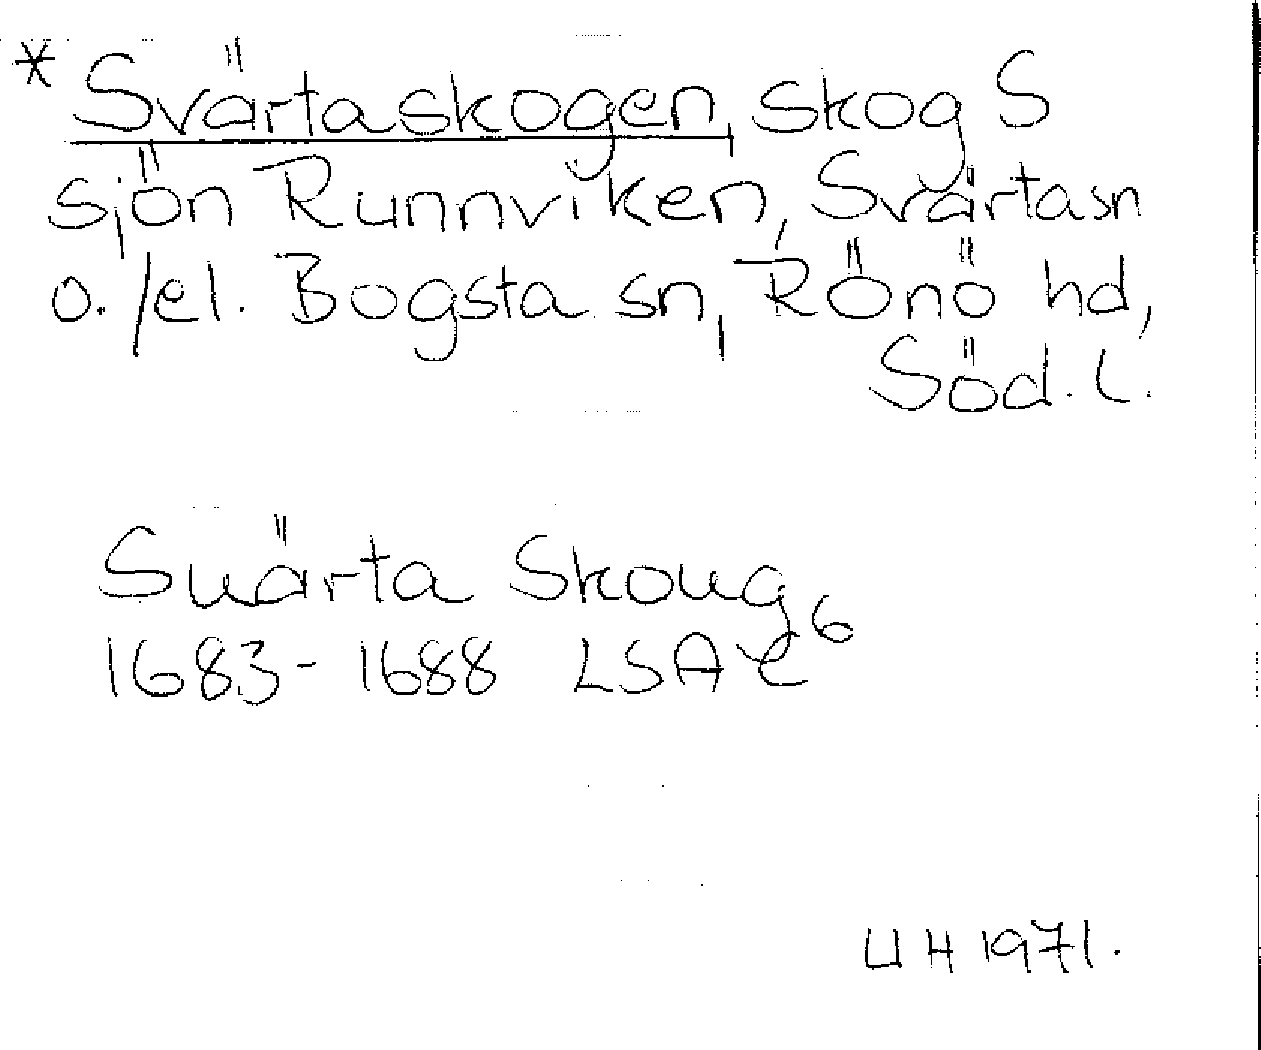 * Svärtaskogen, skog S
sjön Runnviken, Svärta sn
o./el. Bogsta sn, Rönö hd,
Söd. L.
Suärta Skoug
1683-1688 LSA C6
UH 1971.